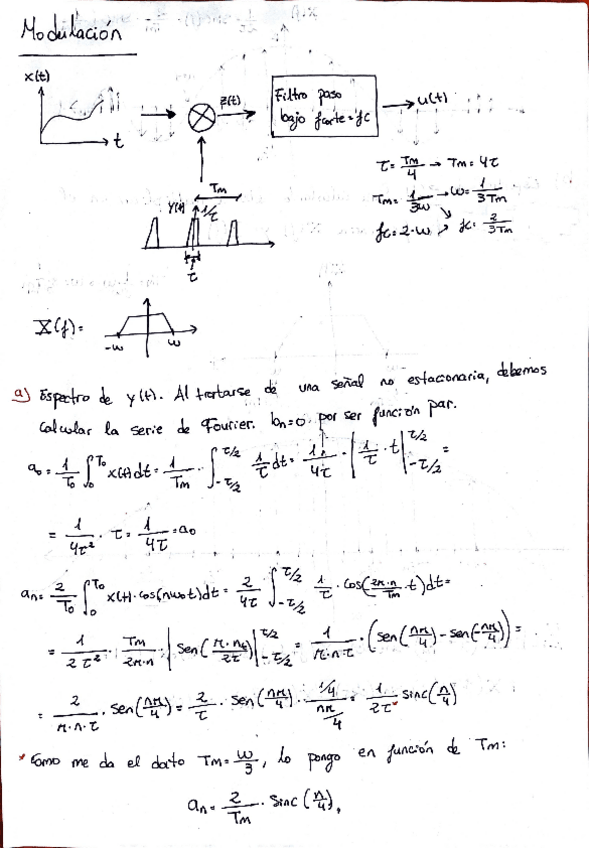 Modulación
x(t)
t
z(t)
Filtro paso
bajo fcorte=fc
u(t)
τ = Tm/4 → Tm = 4τ
Tm
Tm = 1/3w → w = 1/3Tm
y(t) 1/τ
fc = 2·w fc = 2/3Tm
τ
X(f) =
-w w
a) Espectro de y(t). Al tratarse de una señal no estacionaria, debemos
calcular la serie de Fourier. bn=0 por ser función par.
a₀ = 1/T₀ ∫₀^T₀ x(t)dt = 1/Tm · ∫_-τ/2^τ/2 1/τ dt = 1/4τ · |1/τ · t|_-τ/2^τ/2 =
= 1/4τ² · τ = 1/4τ = a₀
an = 2/T₀ ∫₀^T₀ x(t)·cos(nω₀t)dt = 2/4τ ∫_-τ/2^τ/2 1/τ · cos(2π·n/Tm · t)dt =
= 1/2τ² · Tm/2π·n · |Sen(π·nt/2τ)|_-τ/2^τ/2 = 1/π·n·τ · (sen(nπ/4) - sen(-nπ/4)) =
= 2/π·n·τ · sen(nπ/4) = 2/τ · sen(nπ/4) · 1/4/nπ/4 = 1/2τ* sinc(n/4)
* Como me da el dato Tm = w/3, lo pongo en función de Tm:
an = 2/Tm · sinc(n/4),